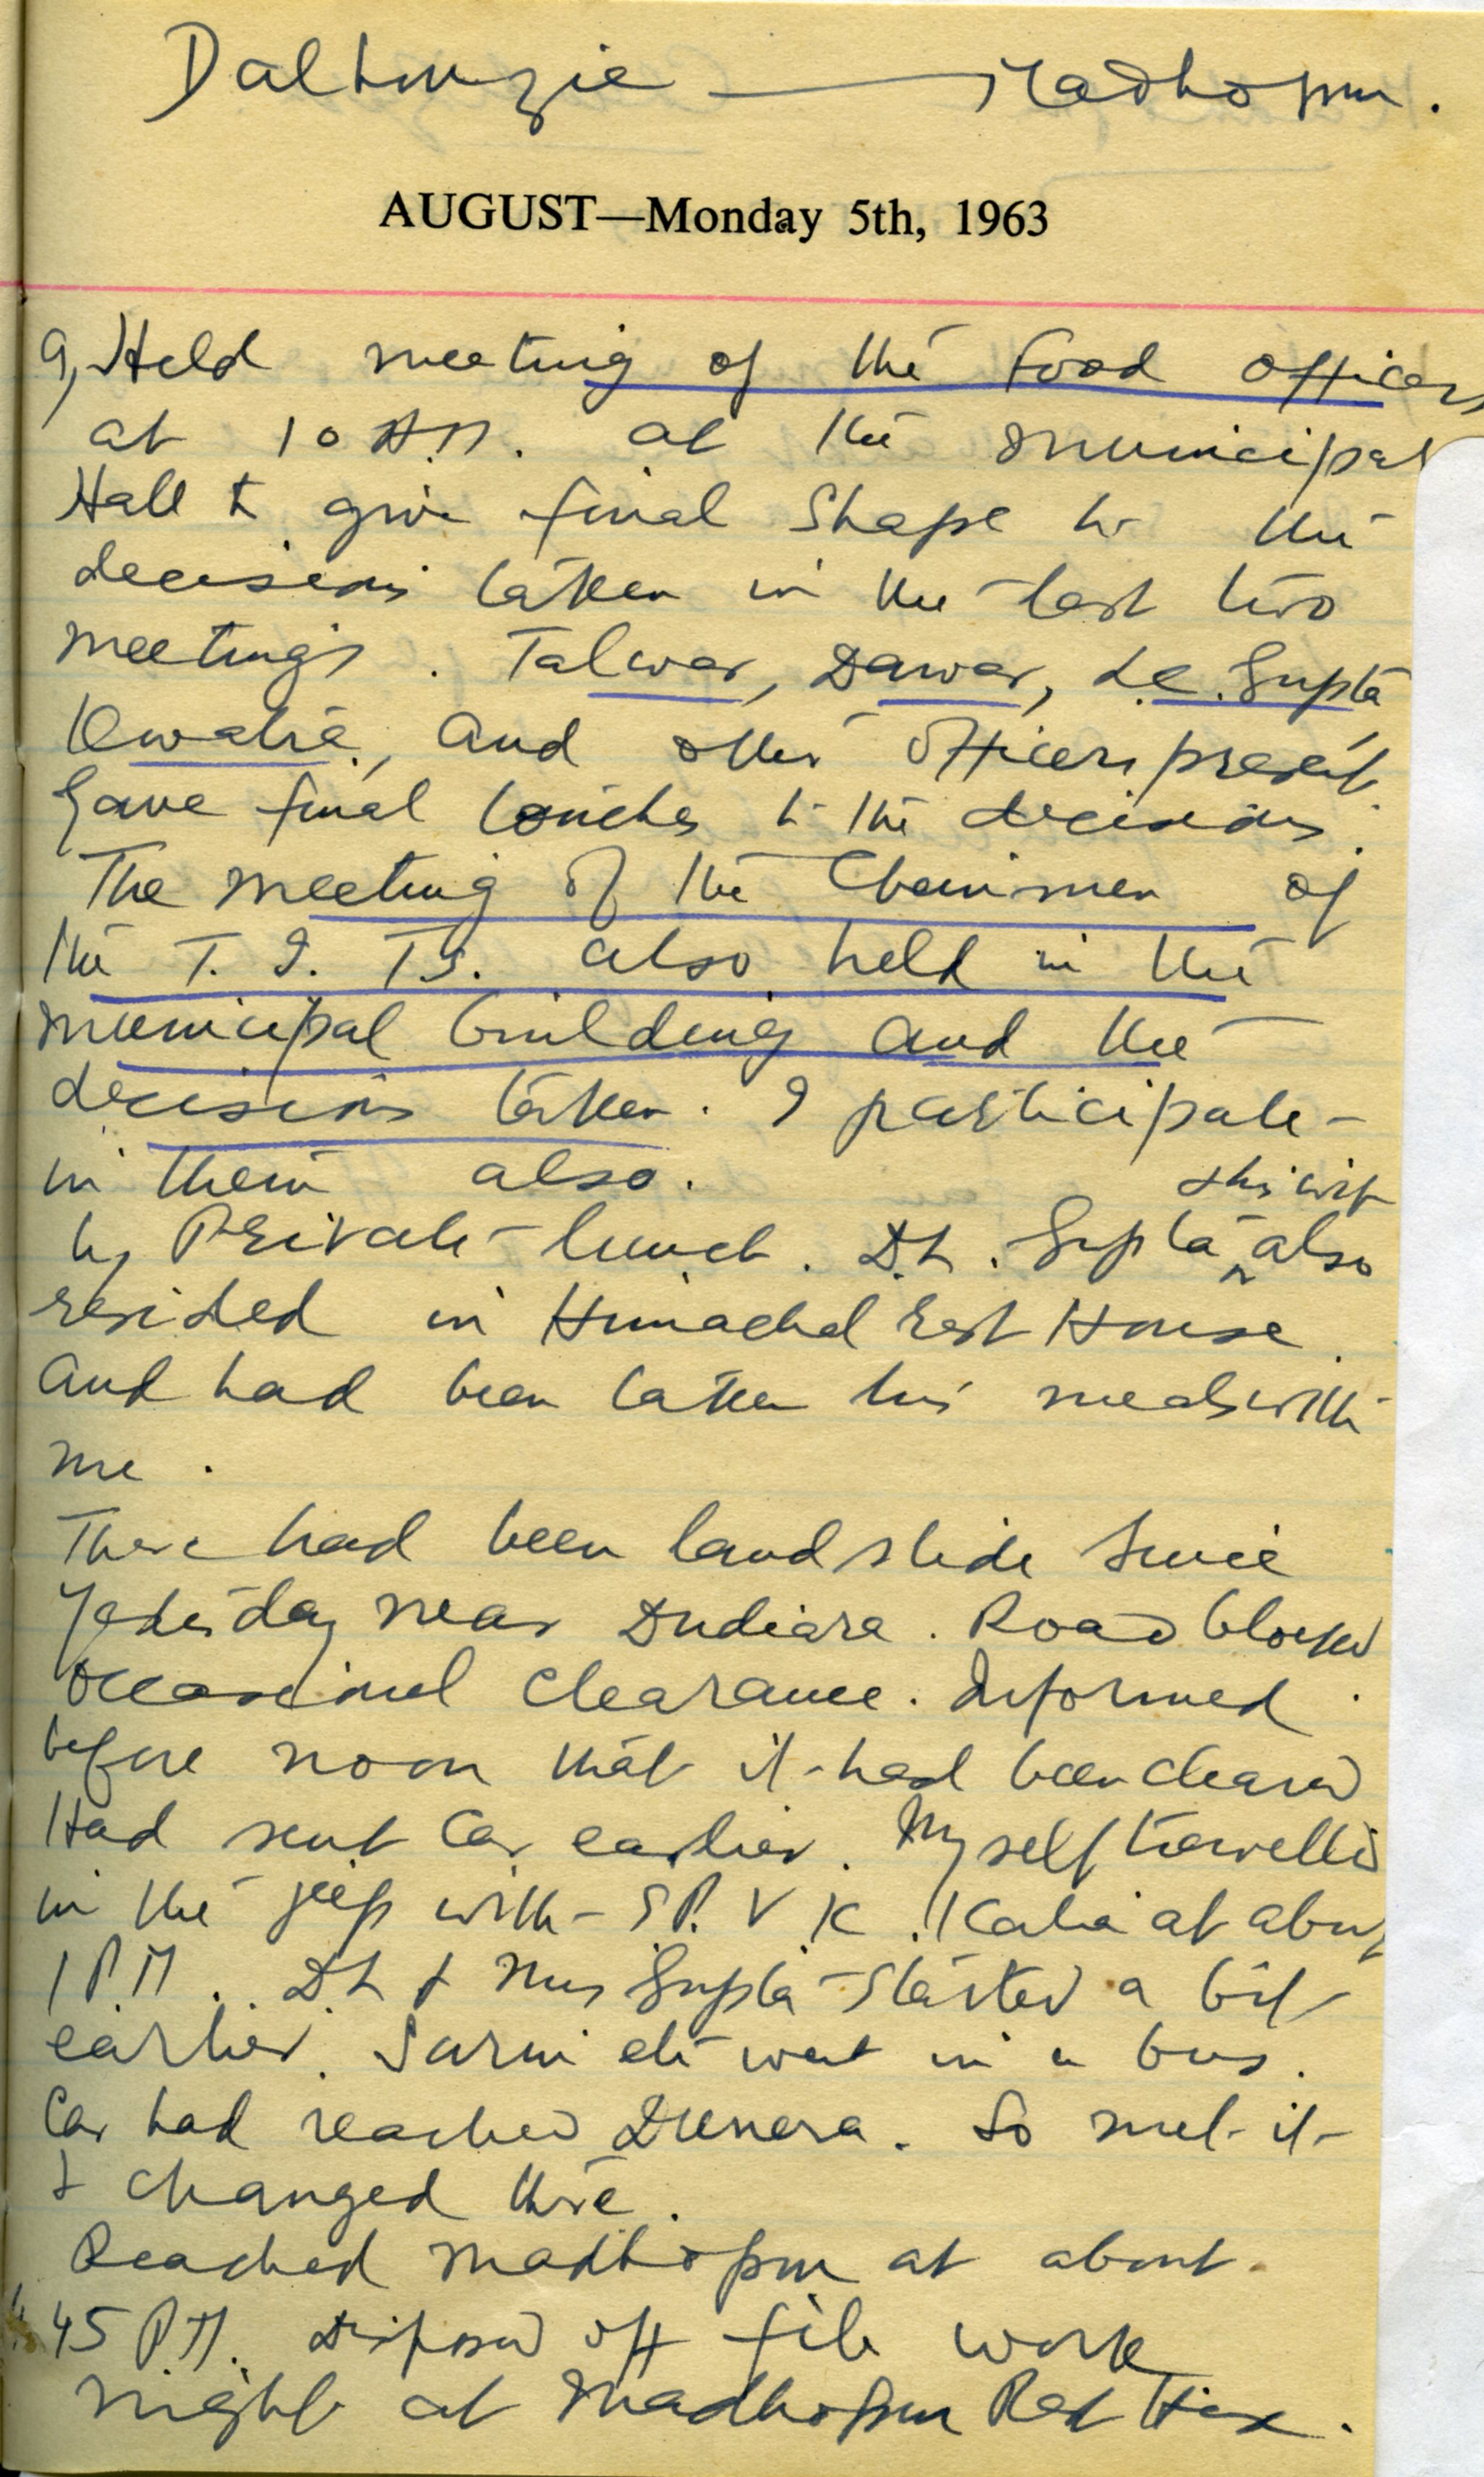 Dalhousie — Madhopur.
AUGUST—Monday 5th, 1963
9, Held meeting of the Food officers
at 10 A.M. at the municipal
Hall to give final shape to the
decisions taken in the last two
meetings. Talwar, Dawar, Gupta
and other officers present.
Gave final touches to the decisions.
The meeting of the Chairmen of
the T. I. Ts. also held in the
municipal building and the
decisions taken. I participate
in them also.
& his wife
by Private lunch. D.L. Gupta ^ also
resided in Himachal rest House
and had been taken his meals with
me.
There had been landslide since
yesterday near Dudiara. Road blocked
occasional clearance. Informed
before noon that it had been cleared
Had sent Car earlier. Myself travelled
in the jeep with S.P. V K. Kalia at about
1 P.M.. D L & Mrs Gupta started a bit
earlier. went in a bus.
Car had reached Dunera. So met it
& changed there.
Reached Madhopur at about
45 P.M. Disposed off file work
night at Madhopur Rest House.